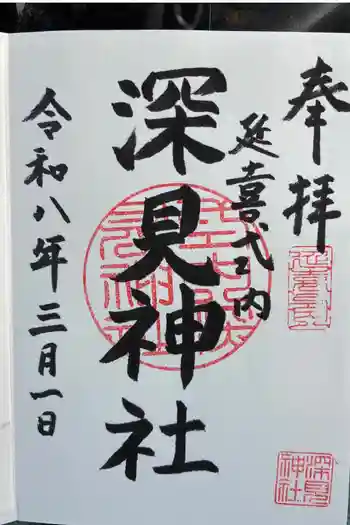 奉拝
延喜式内
深見神社
令和八年三月一日
深見
神社